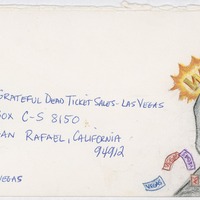 GRATEFUL DEAD TICKET SALES - LAS VEGAS
BOX C-S 8150
SAN RAFAEL, CALIFORNIA
94912
VEGAS
VEGAS